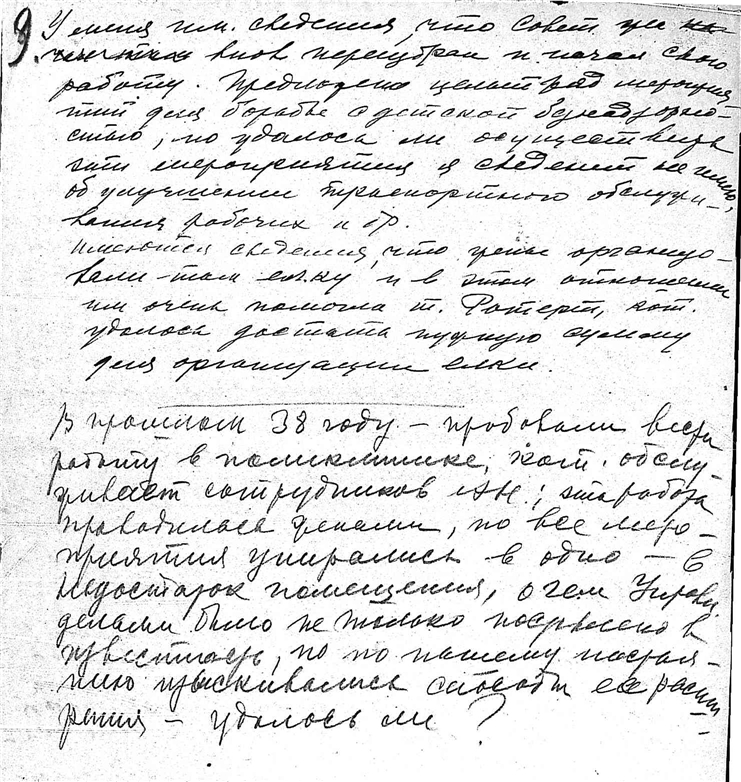 9. У меня им. сведения, что Совет уже
вновь переизбран и начал свою
работу. Предложено целый ряд мероприя
тий для борьбы с детской безнадзорно-
стью, но удалось ли осуществить
эти мероприятия я сведений не имею,
об улучшении транспортного обслужи-
вания рабочих и др.
Имеются сведения, что жены организо-
вали там ёлку и в этом отношении
им очень помогла т. Ротерт, кот.
удалось достать нужную сумму
для организации елки.
В прошлом 38 году – пробовали вести
работу в поликлинике, кот. обслу-
живает сотрудников АН; эта работа
проводилась женами, но все меро-
приятия упирались в одно – в
недостаток помещения, о чем Управл.
делами было не только поставлено в
известность, но по нашему настоя-
нию изыскивались способы ее расши
рения – удалось ли ?